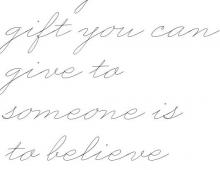 gift you can
give to
someone is
to believe